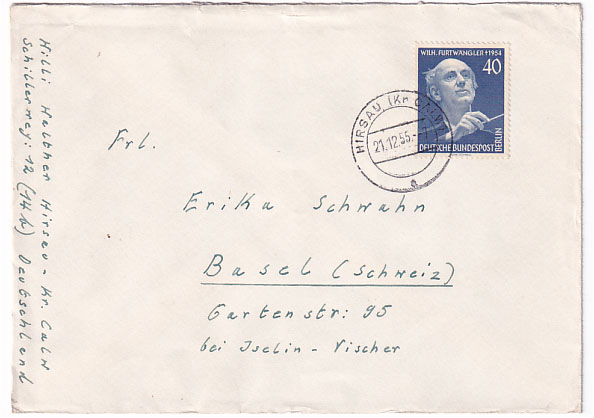 Willi Walther Hirsau - Kr. Calw
Schillerweg: 12 (14b) Deutschland
WILH. FURTWÄNGLER † 1954
40
DEUTSCHE BUNDESPOST
BERLIN
HIRSAU (Kr CALW)
21.12.55.
a
Frl.
Erika Schwahn
Basel (Schweiz)
Gartenstr: 95
bei Iselin - Vischer